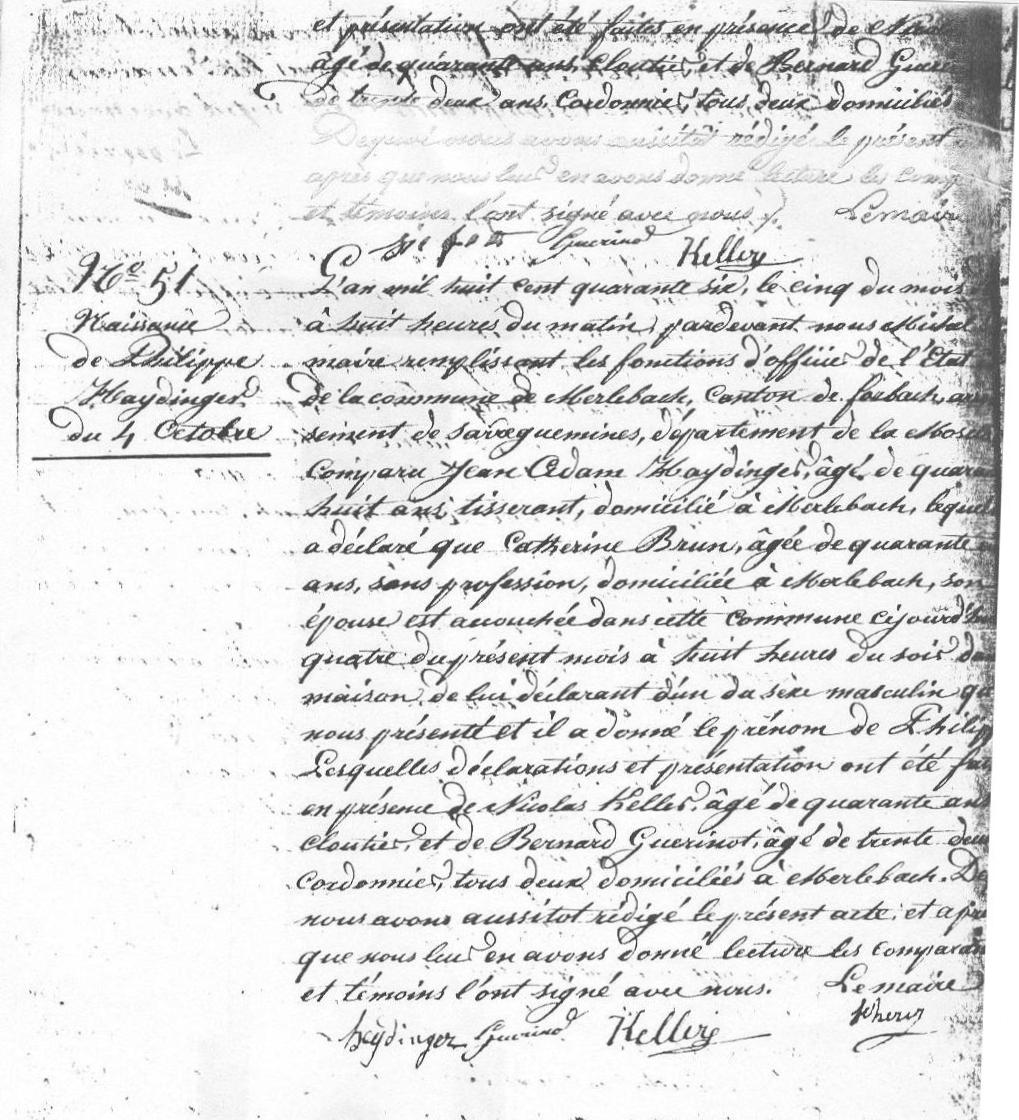 et présentation ont été faites en présence de
âgé de quarante ans, cloutier, et de Bernard Guerin
de trente deux ans, cordonnier, tous deux domiciliés
De quoi nous avons aussitôt rédigé le présent
après que nous leur en avons donné lecture les comp
et témoins l'ont signé avec nous. Lemaire
Guerinot Keller
No. 51
Naissance
de Philippe
Haydinger
du 4 Octobre
L'an mil huit cent quarante six, le cinq du mois
à huit heures du matin, pardevant nous Michel
maire remplissant les fonctions d'officier de l'Etat
de la commune de Merlebach, Canton de forbach, arron
sement de Sarreguemines, département de la Mosel
comparu Jean Adam Haydinger, âgé de quaran
huit ans, tisserant, domicilié à Merlebach, lequel
a déclaré que Catherine Brun, âgée de quarante
ans, sans profession, domiciliée à Merlebach, son
épouse est accouchée dans cette commune cejourd'hu
quatre du présent mois à huit heures du soir dan
maison de lui déclarant d'un du sexe masculin qu
nous présenté et il a donné le prénom de Philip
Lesquelles déclarations et présentation ont été fai
en présence de Nicolas Keller, âgé de quarante ans
cloutier, et de Bernard Guerinot, âgé de trente deux
cordonnier, tous deux domiciliés à Merlebach. De
nous avons aussitot rédigé le présent acte, et aprè
que nous leur en avons donné lecture les comparan
et témoins l'ont signé avec nous. Lemaire
heydinger Guerinot Keller